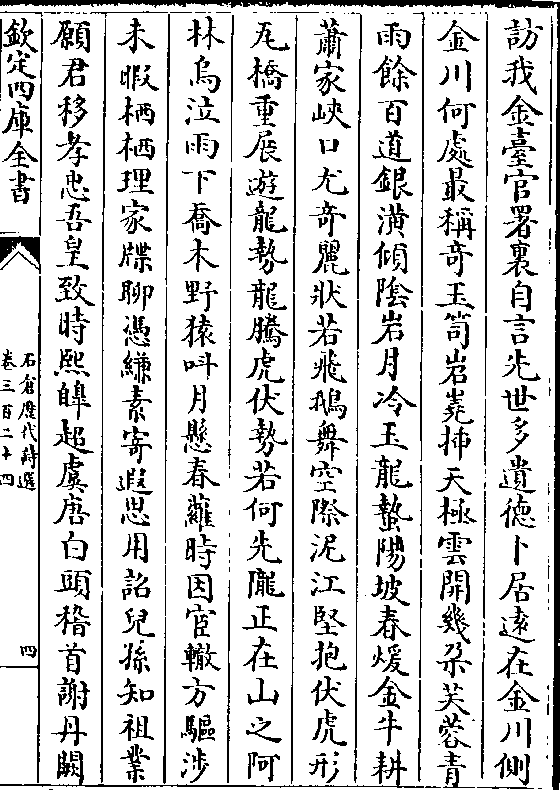 訪我金臺官署裏自言先世多遺德卜居遠在金川側
金川何處最稱奇玉笥岩嶤揷天極雲開幾朶芙蓉青
雨餘百道銀潢傾陰岩月冷玉龍蟄陽坡春煖金牛耕
蕭家峽口尤奇麗狀若飛鵝舞空際泥江堅抱伏虎形
瓦橋重展遊龍勢龍騰虎伏勢若何先隴正在山之阿
林烏泣雨下喬木野猿呌月懸春蘿時因宦轍方驅涉
未暇栖栖理家牒聊憑縑素寄遐思用詔兒孫知祖業
願君移孝忠吾皇致時熙皥超虞唐白頭稽首謝丹闕
欽定四庫全書
石倉歷代詩選
卷三百二十四
四